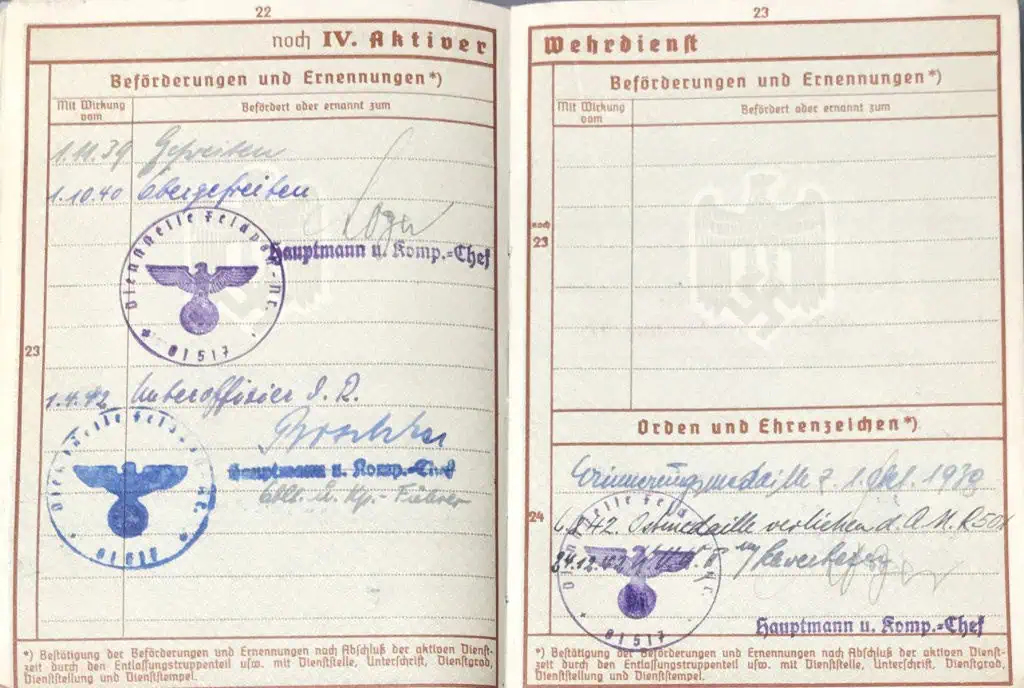 22
noch IV. Aktiver
Beförderungen und Ernennungen*)
Mit Wirkung vom
Befördert oder ernannt zum
1.11.39 Gefreiten
1.10.40 Obergefreiten
Hauptmann u. Komp.-Chef
Dienststelle Feldpost-Nr.
01517
23
1.4.42 Unteroffizier d. R.
Hauptmann u. Komp.-Chef
Oblt. u. Kp.-Führer
Dienststelle Feldpost Nr.
01517
*) Bestätigung der Beförderungen und Ernennungen nach Abschluß der aktiven Dienst-
zeit durch den Entlassungstruppenteil usw. mit Dienststelle, Unterschrift, Dienstgrad,
Dienststellung und Dienststempel.
23
Wehrdienst
Beförderungen und Ernennungen*)
Mit Wirkung vom
Befördert oder ernannt zum
noch
23
Orden und Ehrenzeichen*)
Erinnerungsmedaille z. 1. Okt. 1938
24
42. Ostmedaille verliehen d. A. N. R. 501
24.12.42
Dienststelle Feldpost Nr.
01517
Hauptmann u. Komp.-Chef
*) Bestätigung der Beförderungen und Ernennungen nach Abschluß der aktiven Dienst-
zeit durch den Entlassungstruppenteil usw. mit Dienststelle, Unterschrift, Dienstgrad,
Dienststellung und Dienststempel.